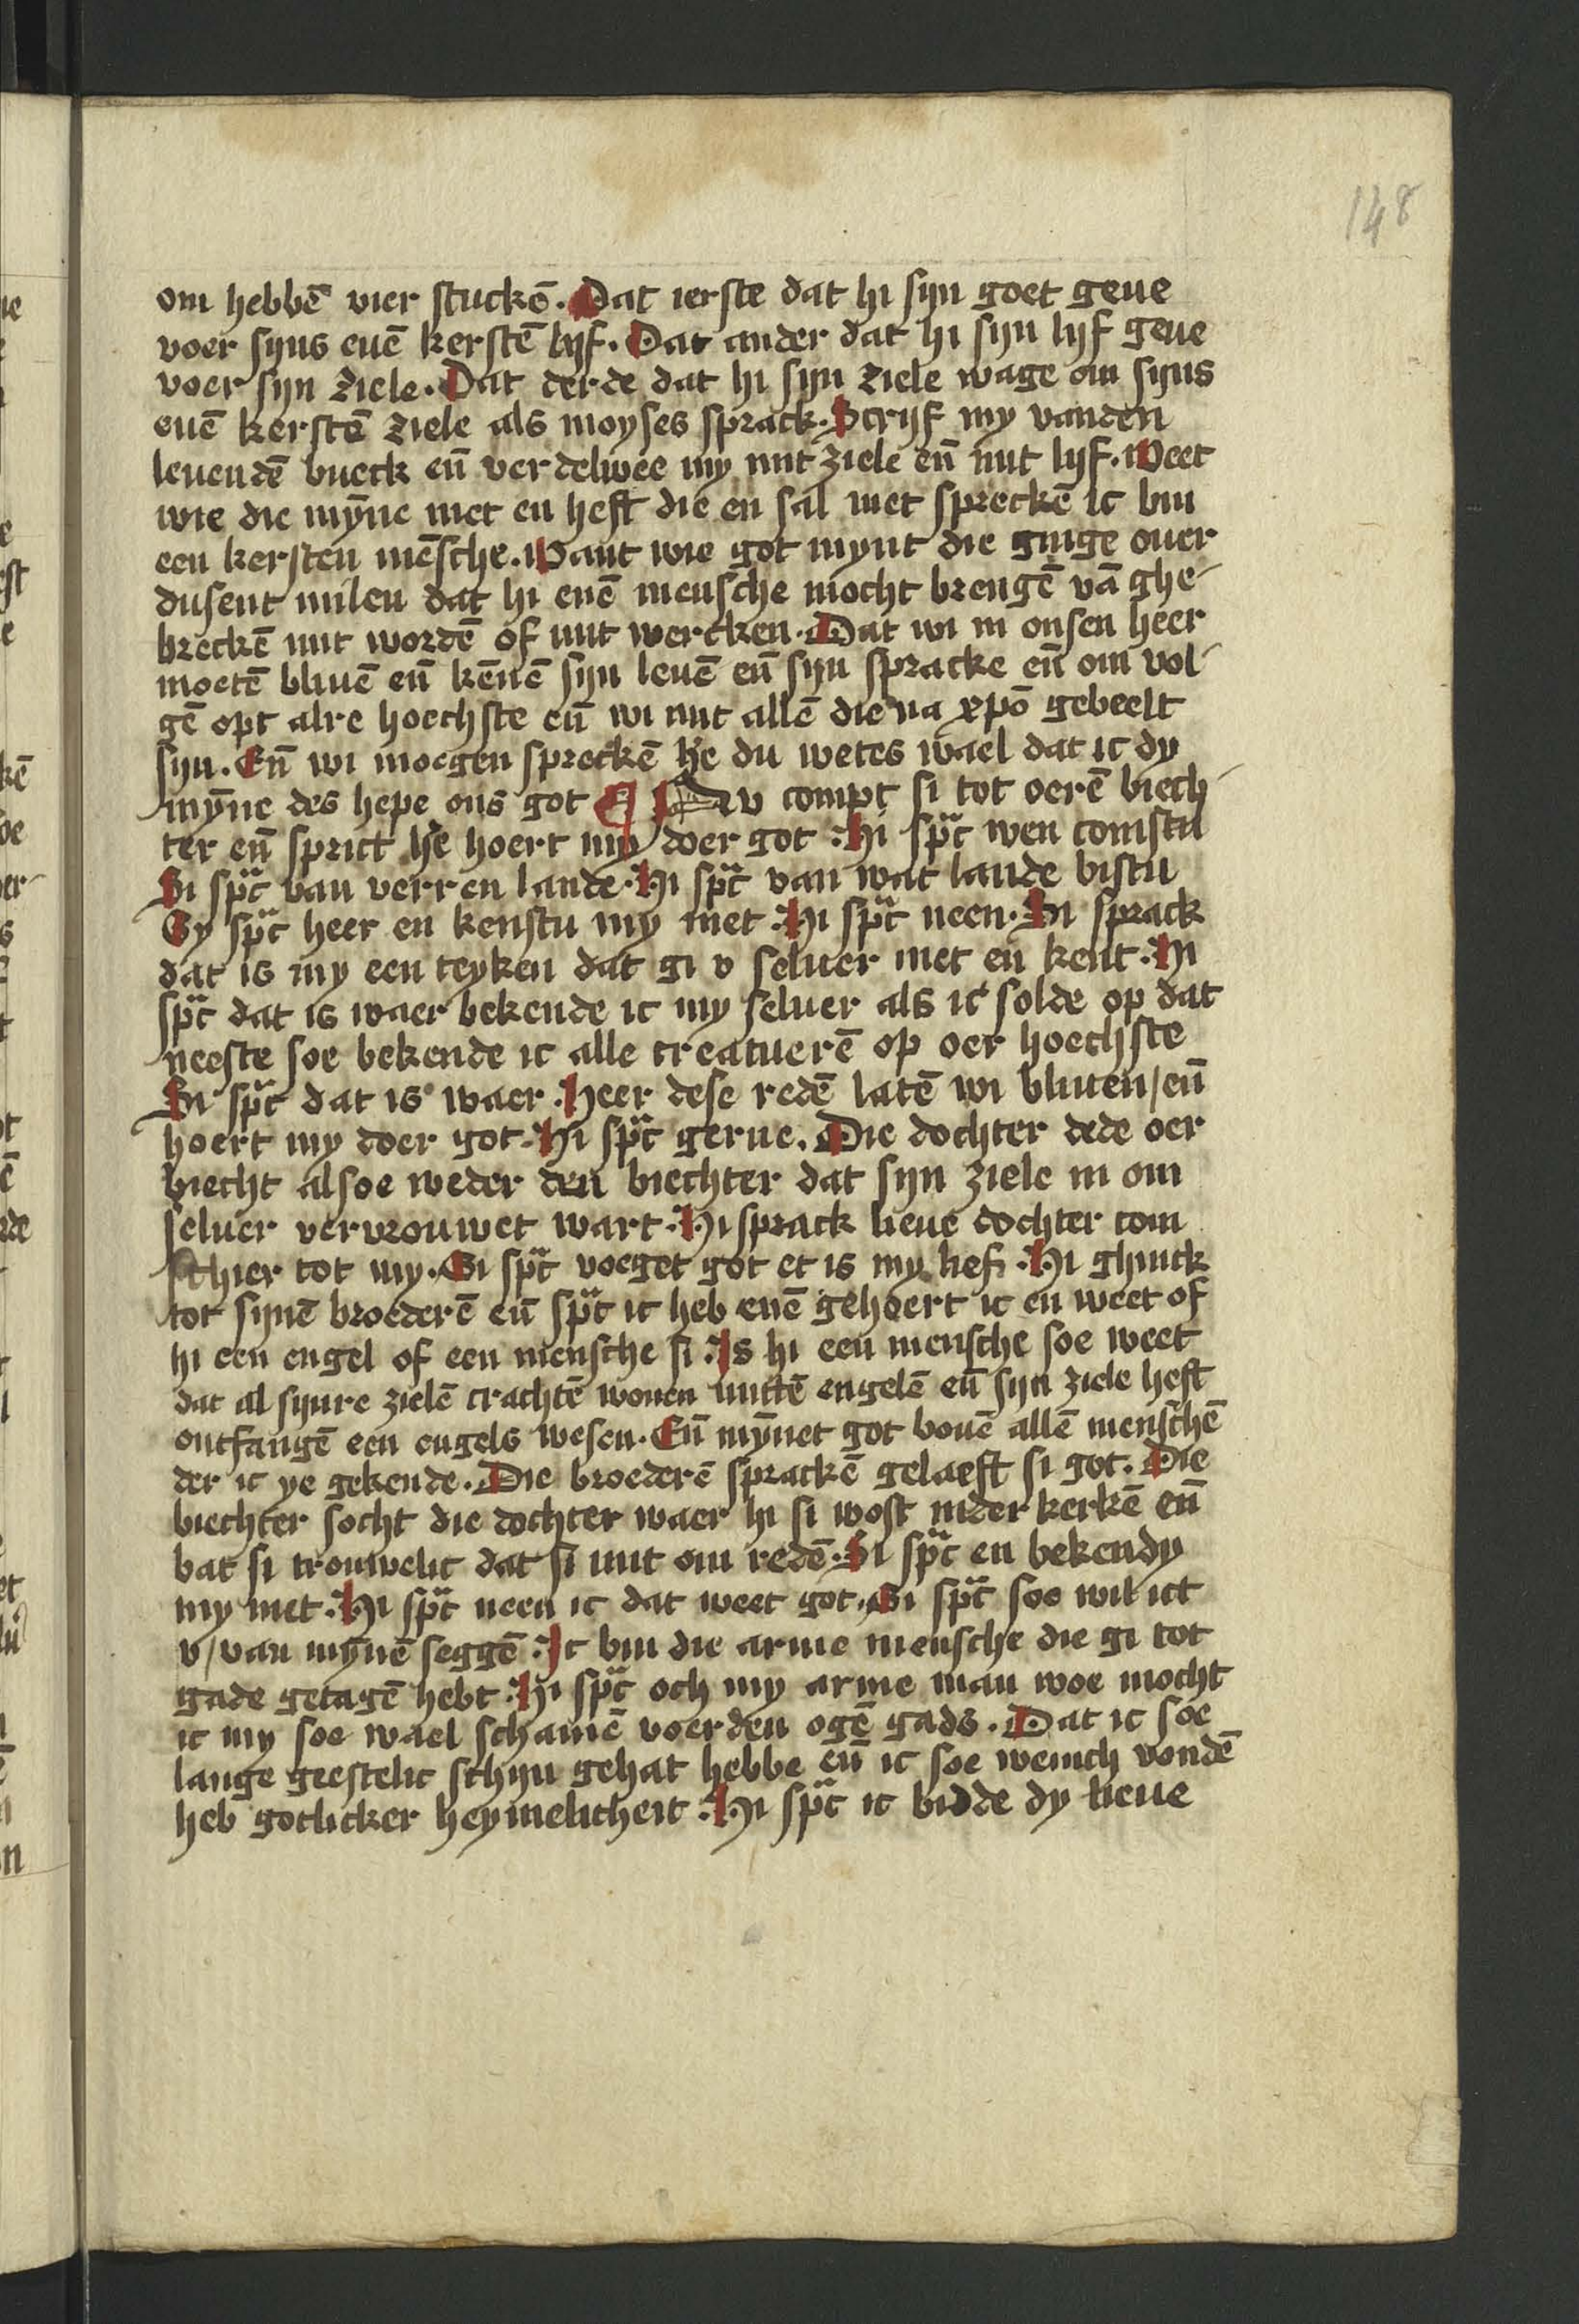 148
om hebbē vier stuckē. Dat ierste dat hi sijn goet geue
voer sijns euē kerstē lijf. Dat ander dat hi sijn lijf geue
voer sijn ziele. Dat derde dat hi sijn ziele wage om sijns
euē kerstē ziele als moyses sprack. Scrijf my vanden
leuendē bueck eñ verdelwee my mit ziele eñ mit lijf. Weet
wie die mȳne niet en heft die en sal niet spreckē ic bin
een kersten mēsche. Want wie got mynt die ginge ouer
dusent milen dat hi enē mensche mocht brengē vā ghe-
breckē mit wordē of mit wercken. Dat wi in onsen heer
moetē bliuē eñ kēnē sijn leuē eñ sijn spracke eñ om vol-
gē opt alre hoechste eñ wi mit allē die na xpō gebeelt
sijn. Eñ wi moegen spreckē he du wetes wael dat ic dy
mȳne des hepe ons got Nv compt si tot oerē biech-
ter eñ sprict he hoert my doer got. Hi spᵃc wen comstu
Si spᵃc van verren lande. Hi spᵃc van wat lande bistu
Sy spᵃc heer en kenstu my niet. Hi spᵃc neen. Si sprack
dat is my een teyken dat gi v seluer niet en kent. Hi
spᵃc dat is waer bekende ic my seluer als ic solde op dat
neeste soe bekende ic alle creatuerē op oer hoechste
Si spᵃc dat is waer. Heer dese redē latē wi bliuen/eñ
hoert my doer got. Hi spᵃc gerne. Die dochter dede oer
biecht alsoe weder den biechter dat sijn ziele in om
seluer vervrouwet wart. Hi sprack lieue dochter com
schier tot my. Si spᵃc voeget got et is my lief. Hi ghinck
tot sijnē broederē eñ spᵃc ic heb enē gehoert ic en weet of
hi een engel of een mensche si. Is hi een mensche soe weet
dat al sijnre zielē crachtē wonen mittē engelē eñ sijn ziele heft
ontfangē een engels wesen. Eñ mȳnet got bouē allē menschē
der ic ye gekende. Die broederē sprackē gelaeft si got. Die
biechter socht die dochter waer hi si wost inder kerkē eñ
bat si trouwelic dat si mit om redē. Si spᵃc en bekendy
my niet. Hi spᵃc neen ic dat weet got. Si spᵃc soe wil ict
v/van mȳnē seggē. Ic bin die arme mensche die gi tot
gade getagē hebt. Hi spᵃc och my arme man woe mocht
ic my soe wael schamē voerden ogē gads. Dat ic soe
lange geestelic schijn gehat hebbe eñ ic soe weinich vondē
heb gotlicker heymelicheit. Hi spᵃc ic bidde dy lieue